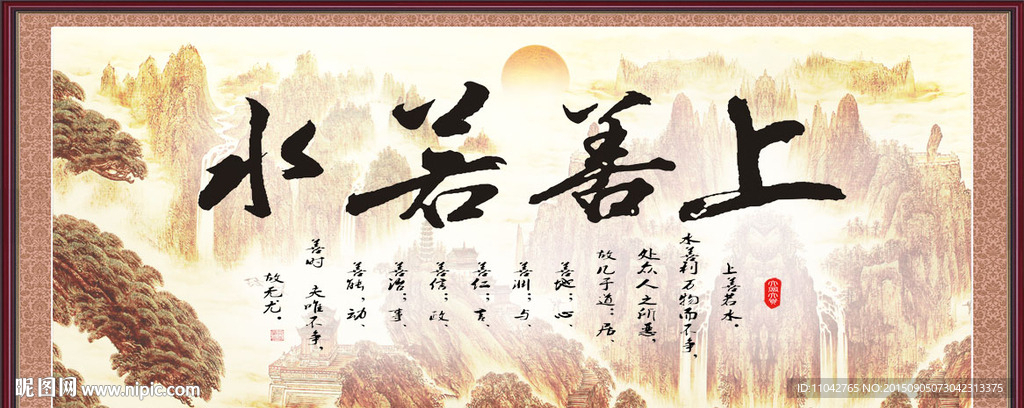 上善若水
上善若水。
水善利万物而不争、
处众人之所恶、
故几于道；居、
善地；心、
善渊；与、
善仁；言、
善信；政、
善治；事、
善能；动、
善时 夫唯不争、
故无尤。
昵图网 www.nipic.com
ID:11042765 NO:20150905073042313375